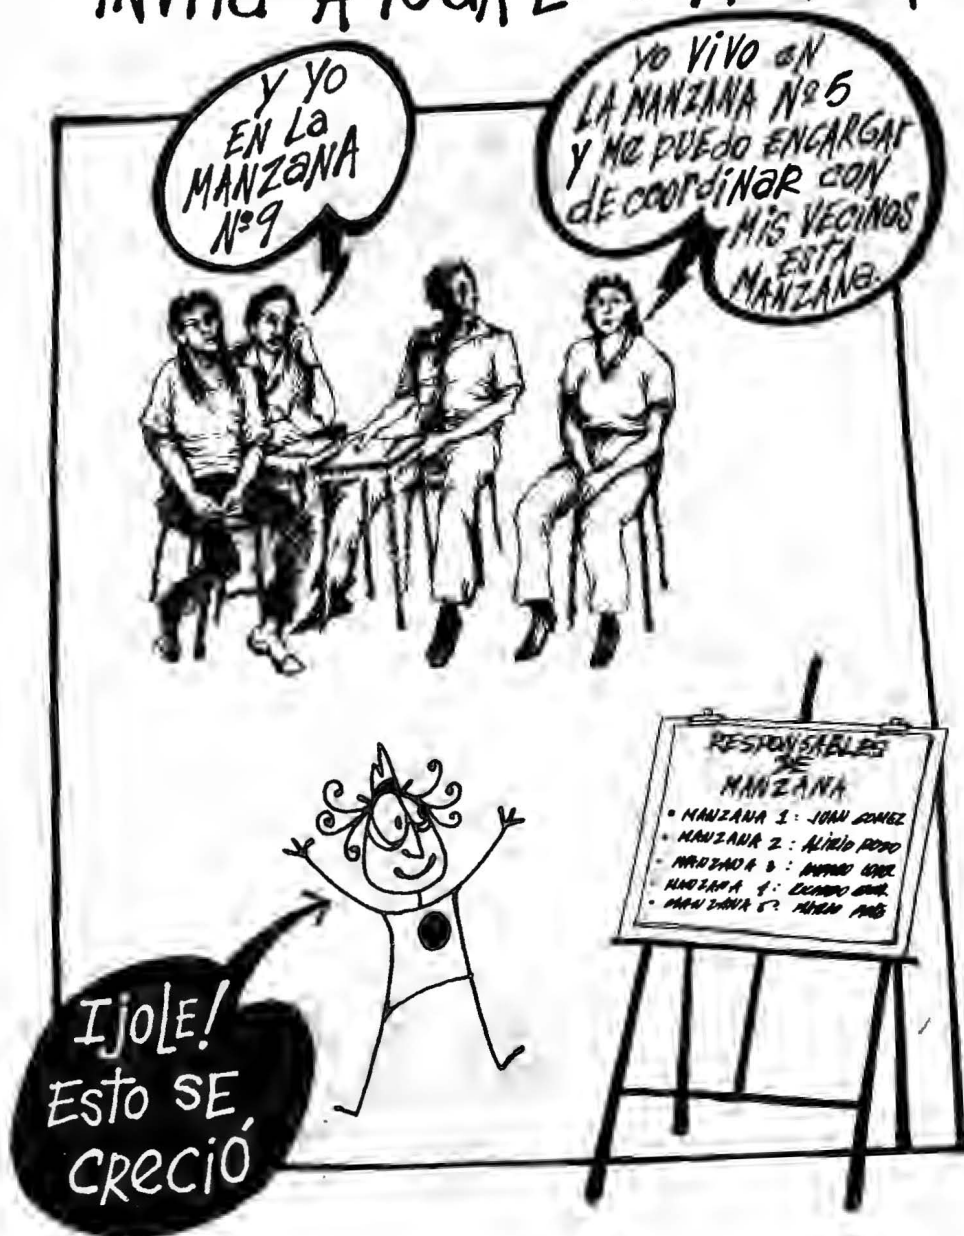 INVITÓ A TODA E
Y YO
EN La
MANZaNA
Nº9
YO ViVO eN
LA MANZANA Nº5
Y Me PUEdo ENCARGAr
dE COORdiNaR CON
MiS VECiNOS
ESTA
MANZANa.
RESPONSABLES
DE
MANZANA
• MANZANA 1: JUAN GOMEZ
• MANZANA 2: ALIRIO
• MANZANA 3:
MANZANA 4: RICARDO
• MANZANA 5: MARIO
IjOLE!
ESto SE
CReCiÓ